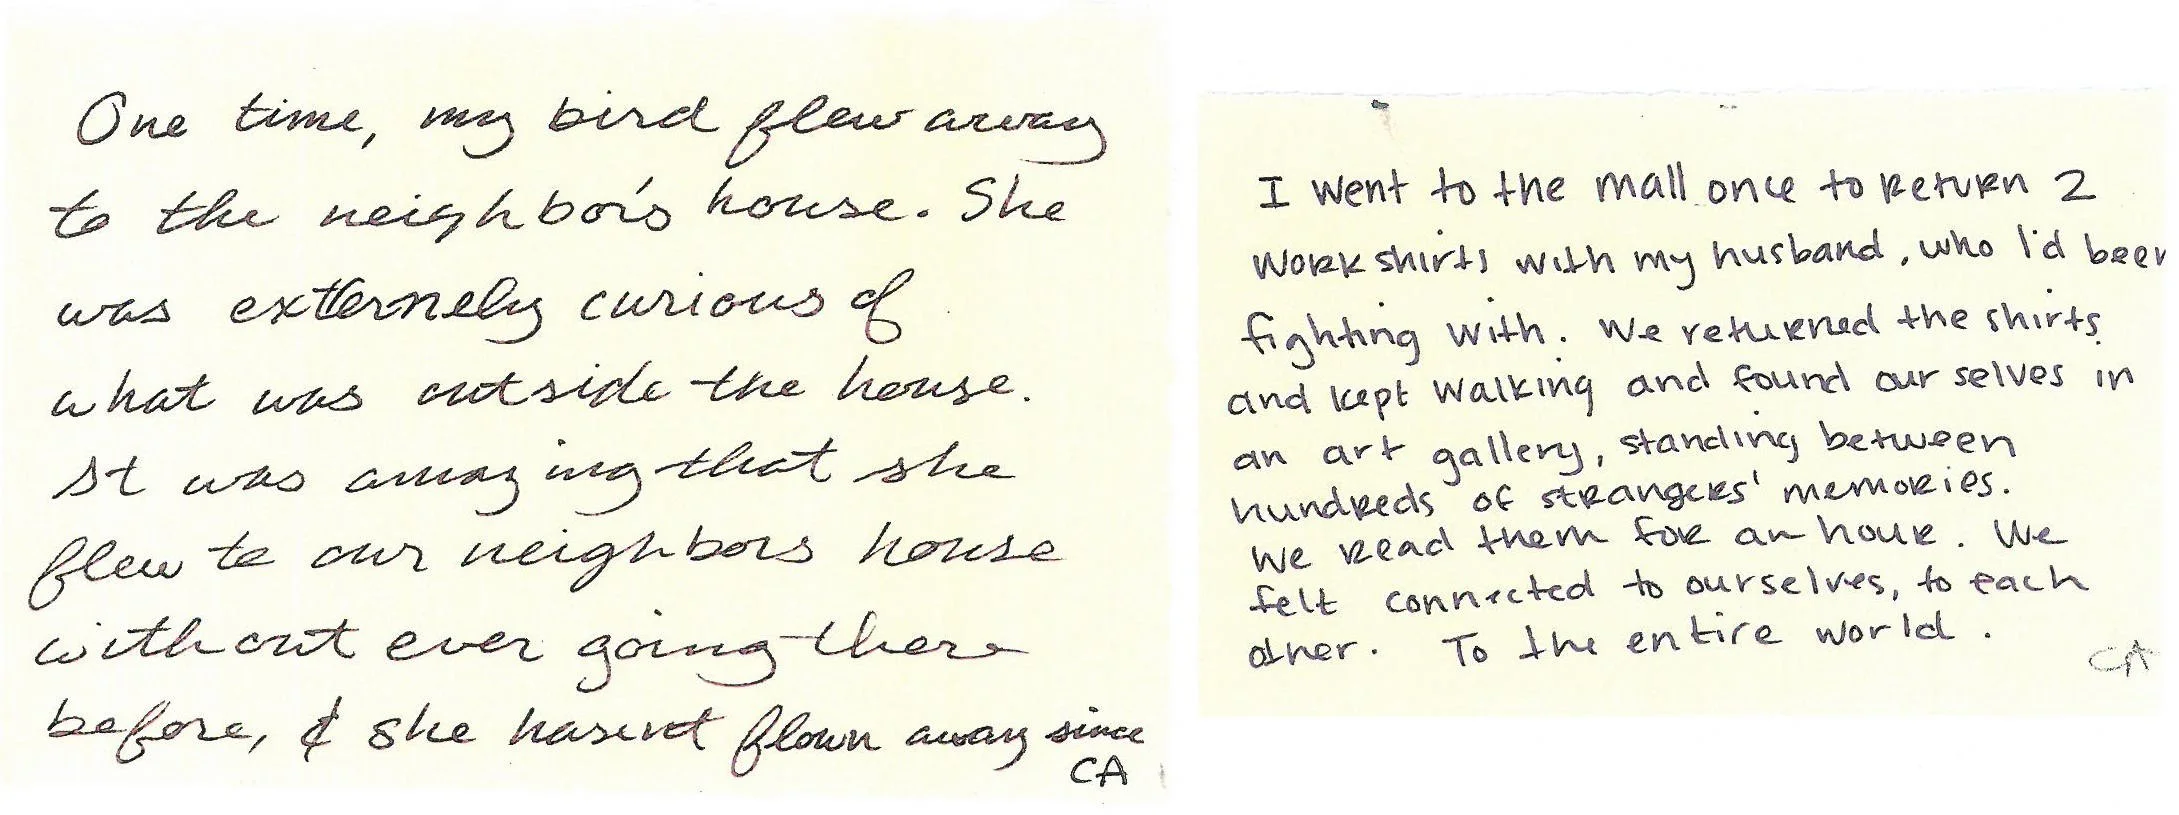 One time, my bird flew away
to the neighbor's house. She
was externely curious of
what was outside the house.
It was amazing that she
flew to our neighbors house
without ever going there
before, & she hasen't flown away since
CA
I went to the mall once to return 2
work shirts with my husband, who I'd been
fighting with. We returned the shirts
and kept walking and found our selves in
an art gallery, standing between
hundreds of strangers' memories.
We read them for an hour. We
felt connected to ourselves, to each
other. To the entire world.
CA